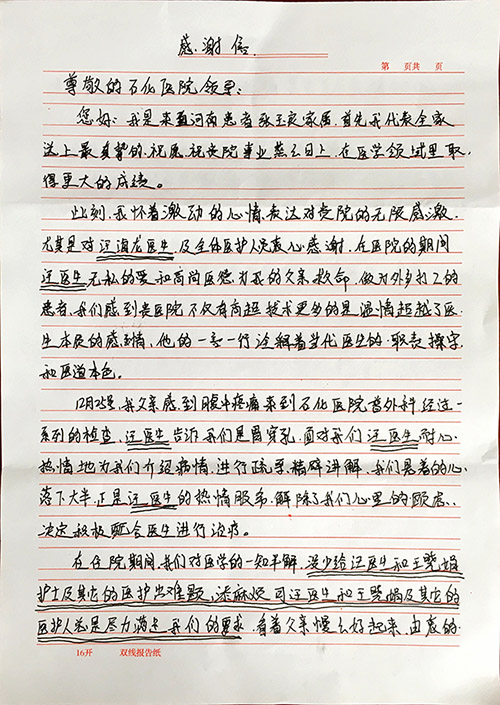 感谢信.
第 页共 页
尊敬的石化医院领导:
您好: 我是来自河南患者张玉良家属,首先我代表全家
送上最真挚的祝愿,祝贵院事业蒸蒸日上,在医学领域里取
得更大的成绩。
此刻,我怀着激动的心情,表达对贵院的无限感激.
尤其是对汪海龙医生,及全体医护人员衷心感谢.在医院的期间
汪医生无私的爱和高尚医德,为我的父亲救命,做为外乡打工的
患者,我们感到贵医院不仅有高超技术更多的是温情超越了医
生本质的感情,他的一言一行诠释着当代医生的职责操守
和医道本色。
12月25号,我父亲感到腹中疼痛来到石化医院普外科经过一
系列的检查,汪医生告诉我们是胃穿孔,面对我们汪医生耐心.
热情地为我们介绍病情,进行疏导,精碎讲解,我们悬着的心
落下大半,正是汪医生的热情服务,解除了我们心里的顾虑、
决定积极配合医生进行治疗。
在住院期间,我们对医学的一知半解,没少给汪医生和王 娟
护士及其它的医护出难题,添麻烦,可汪医生和王 娟及其它的
医护人总是尽力满足我们的要求.看着父亲慢么好起来,由感的
16开 双线报告纸